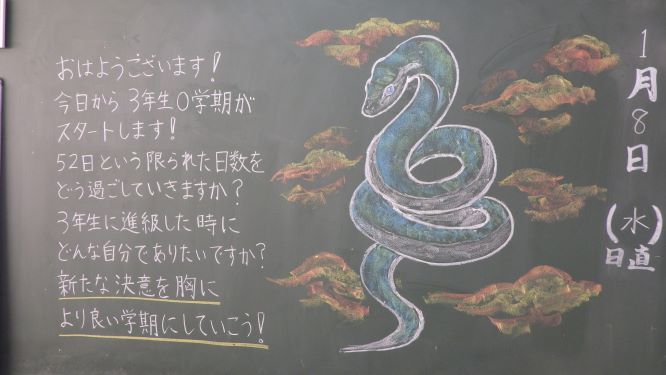 おはようございます!
今日から3年生0学期が
スタートします!
52日という限られた日数を
どう過ごしていきますか?
3年生に進級した時に
どんな自分でありたいですか?
新たな決意を胸に
より良い学期にしていこう!
1月8日(水)
日直